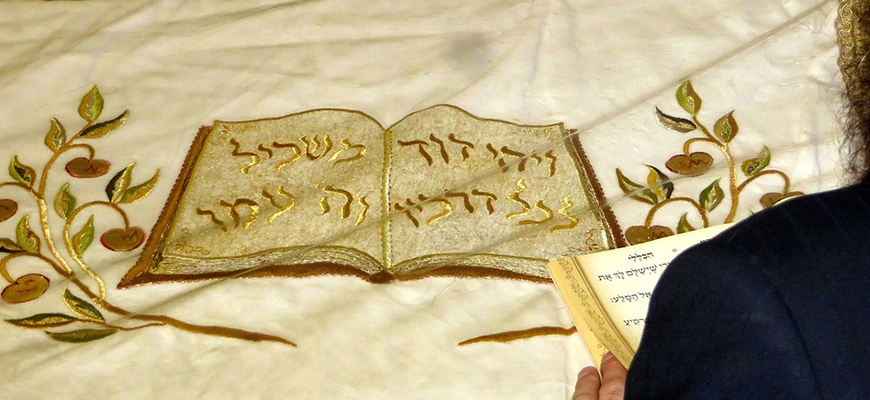 ויהי דוד
לכל דרכיו
משכיל
וה עמו
הכללי
שֶׁיְשַׁלֶּם לָךְ אֶת
אֶל הַסָּלַע: